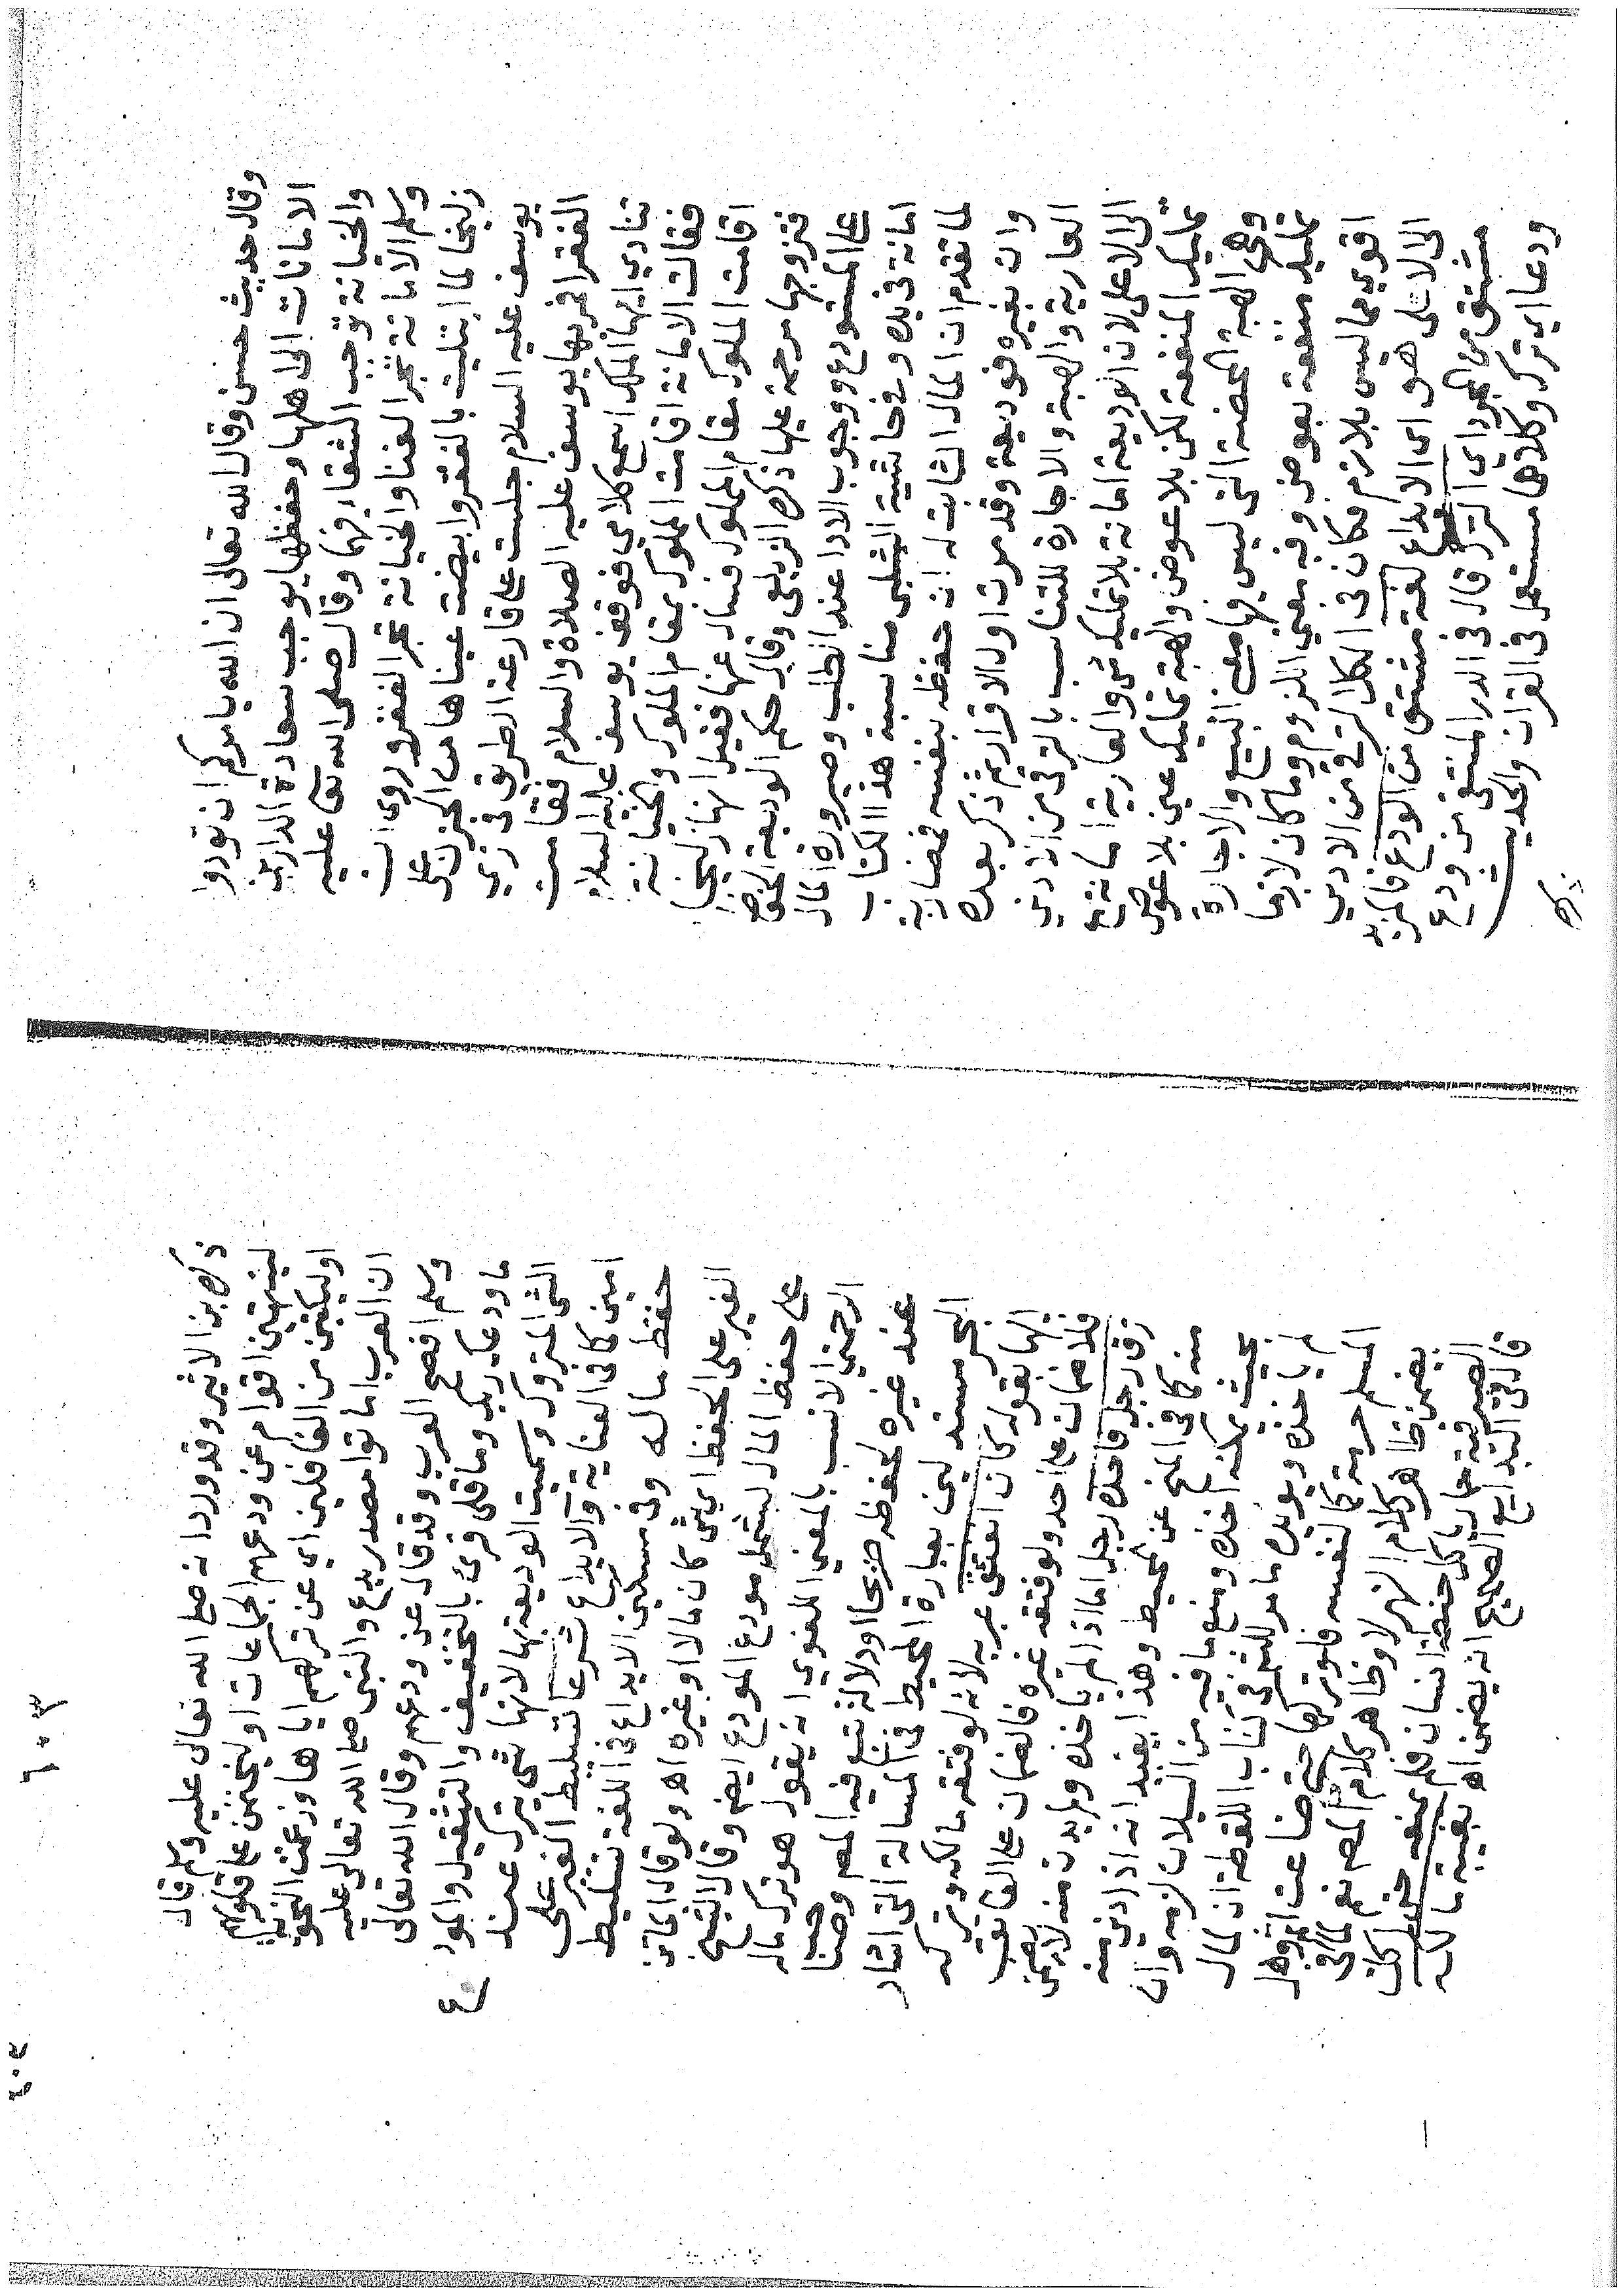 وقال حديث حسن وقال الله تعالى ان الله يامركم ان تودوا
الامانات الى اهلها وحفظها يوجب سعادة الدارين
والخيانة توجب الشقاء فيهما وقال صلى الله تعا عليه
وسلم الامانة تجر الغنا والخيانة تجر الفقر وروى ان
زليخا لما ابتليت بالفقر وابيضت عيناها من الحزن على
يوسف عليه السلام جلست على قارعة الطريق في زي
الفقرا فمر بها يوسف عليه الصلاة والسلام فقامت
تنادي ايها الملك اسمع كلامي فوقف يوسف عليه السلام
فقالت الامانة اقامت المملوك مقام الملوك والخيانة
اقامت الملوك مقام المملوك فسال عنها فقيل انها زليخا
فتزوجها مرحمة عليها ذكره الزيلعي وقال حكم الوديعة الحفظ
على المستودع ووجوب الادا عند الطلب وصيرورة المال
امانة في يده وفي حاشية الشلبي مناسبة هذا الكتاب
لما تقدم ان المال الثابت له ان حفظه بنفسه فمضاربة
وان بغيره فوديعة وقد مرت اول الاقرار ثم ذكر بعده
العارية والهبة والاجارة للتناسب بالترقي من الادنى
الى الاعلى لان الوديعة امانة بلا تمليك شي والعارية امانة مع
تمليك المنفعة لكن بلا عوض والهبة تمليك عين بلا عوض
وهي الهبة المحضة التي ليس فيها معنى البيع والاجارة
تمليك منفعة بعوض وفيه معنى اللزوم وما كان لازما
اقوي مما ليس بلازم فكان في الكل الترقي من الادني
الى الاعلى هو اى الايداع لغة مشتق من الودع فالمزيد
مشتق من المجرد اى الترك قال في الدر المنتقى من ودع
ودعا اي ترك وكلاهما مستعمل في القران والحديث
ذكره
ذكره بن الاثير وقد ورد انه صلى الله تعالى عليه وسلم قال
لينتهين اقوام عن ودعهم الجماعات او ليختمن على قلوبهم
او ليكتبن من الغافلين اي عن تركهم اياها وزعمت النحوية
ان العرب اماتوا مصدر يدع والنبي صلى الله تعالى عليه
وسلم افصح العرب وقد قال عن ودعهم وقال الله تعالى
ما ودعك ربك وما قلى قرئ بالتخفيف والتثقيل والمودع
الشى المتروك وسميت الوديعة بها لانها شى يترك عند
امين كما في العناية والايداع شرعا تسليط الغير على
حفظ ماله وفي مسكين الايداع في اللغة تسليط
الغير على الحفظ اي شى كان مالا او غيره اه ولو قال الخ
على حفظ المال ليشمل مودع المودع ايضا وقال الشيخ
الرحمتي الانسب بالمعنى اللغوي ان يقول هو ترك ماله
عند غيره لحفظه صريحا او دلالة تبع فيه المصنف وصاحب
البحر مسند لين بعبارة المحيط في المسالة التي اشار
اليها بقوله كان انفتق عبر به لانه لو فتقه مالكه وتركه
فلا ضمان على احد ولو فتقه غيره فالضمان على الفاتق
زق رجل فاخذه رجل اما اذا لم ياخذه ولم يدن منه لا يضمن
منه كما في المنح عن المحيط وهذا يفيد انه اذا دنى منه
بحيث يمكنه اخذه ومنع ما فيه من السيلان لزمه وان
لم ياخذه ويويده ما مر للشرف في كتاب اللقطة ان لمال
المسلم حرمة كما لنفسه فلو تركها حتى ضاعت اثم وهل
يضمن ظاهر كلام النهر لا وظاهر كلام المصنف نعم لما في
الصيرفية حمار ياكل حنطة انسان فلم يمنعه حتى اكل
قال في البدايع الصحيح انه يضمن اه بغيبة مالكه